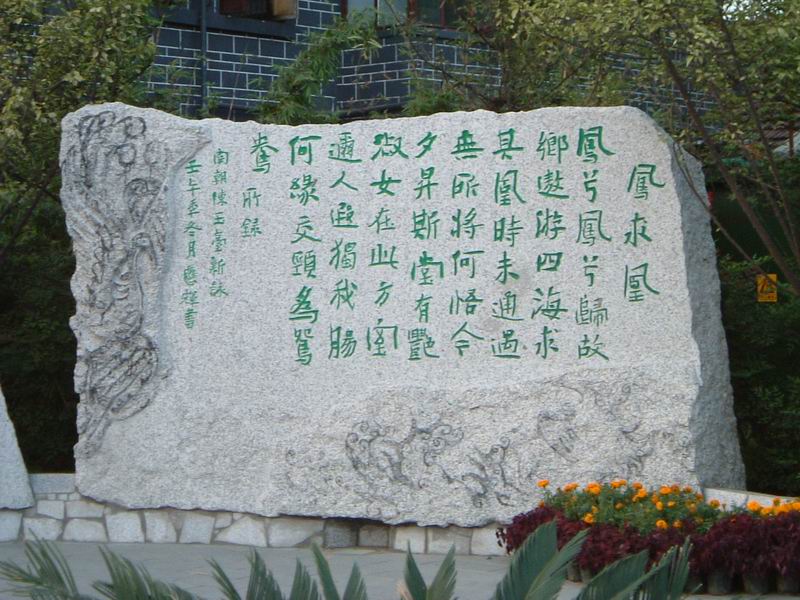 鳳求凰
鳳兮鳳兮歸故
鄉遨游四海求
其凰時未通遇
無所將何悟今
夕昇斯堂有艷
淑女在此方室
邇人遐獨我腸
何緣交頸為鴛
鴦 所錄
南朝陳玉臺新詠
壬午年冬月懋輝書